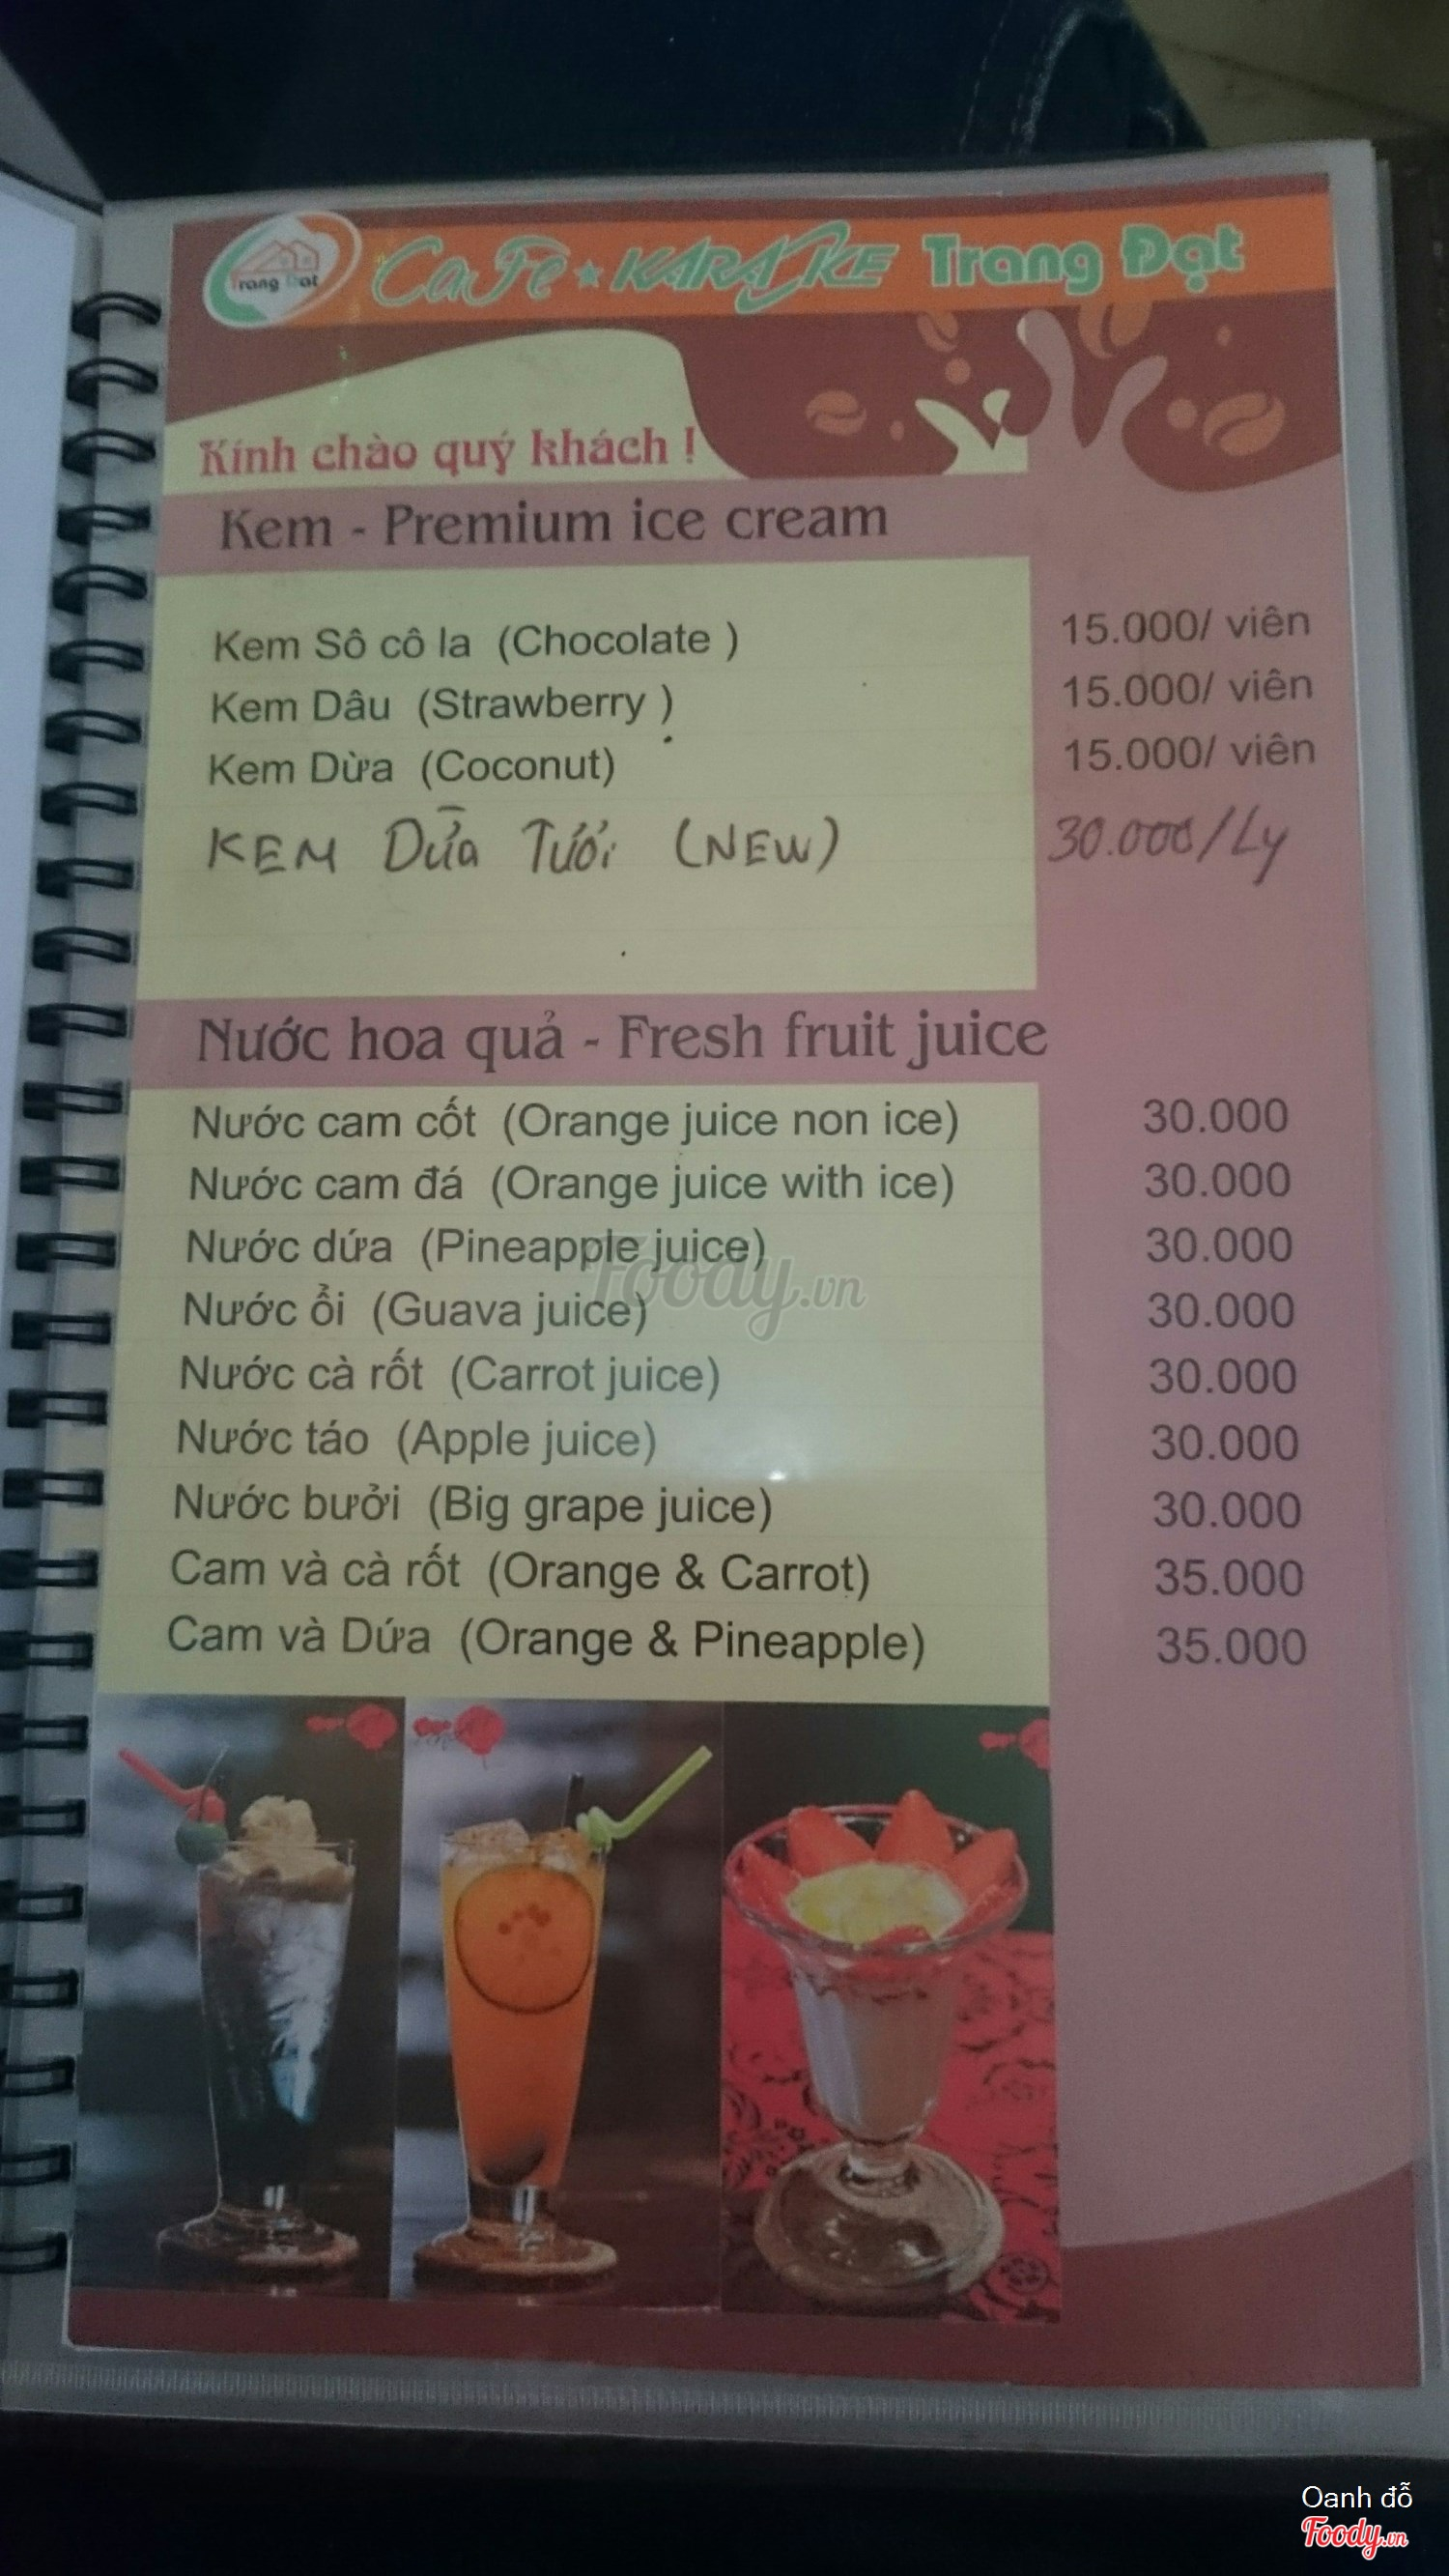 Trang Đạt
CaFe ★ KARAOKE Trang Đạt
Kính chào quý khách !
Kem - Premium ice cream
Kem Sô cô la (Chocolate ) 15.000/ viên
Kem Dâu (Strawberry ) 15.000/ viên
Kem Dừa (Coconut) 15.000/ viên
KEM DỪA TƯƠI (NEW) 30.000/Ly
Nước hoa quả - Fresh fruit juice
Nước cam cốt (Orange juice non ice) 30.000
Nước cam đá (Orange juice with ice) 30.000
Nước dứa (Pineapple juice) 30.000
Nước ổi (Guava juice) 30.000
Nước cà rốt (Carrot juice) 30.000
Nước táo (Apple juice) 30.000
Nước bưởi (Big grape juice) 30.000
Cam và cà rốt (Orange & Carrot) 35.000
Cam và Dứa (Orange & Pineapple) 35.000
Foody.vn
Oanh đỗ
Foody.vn